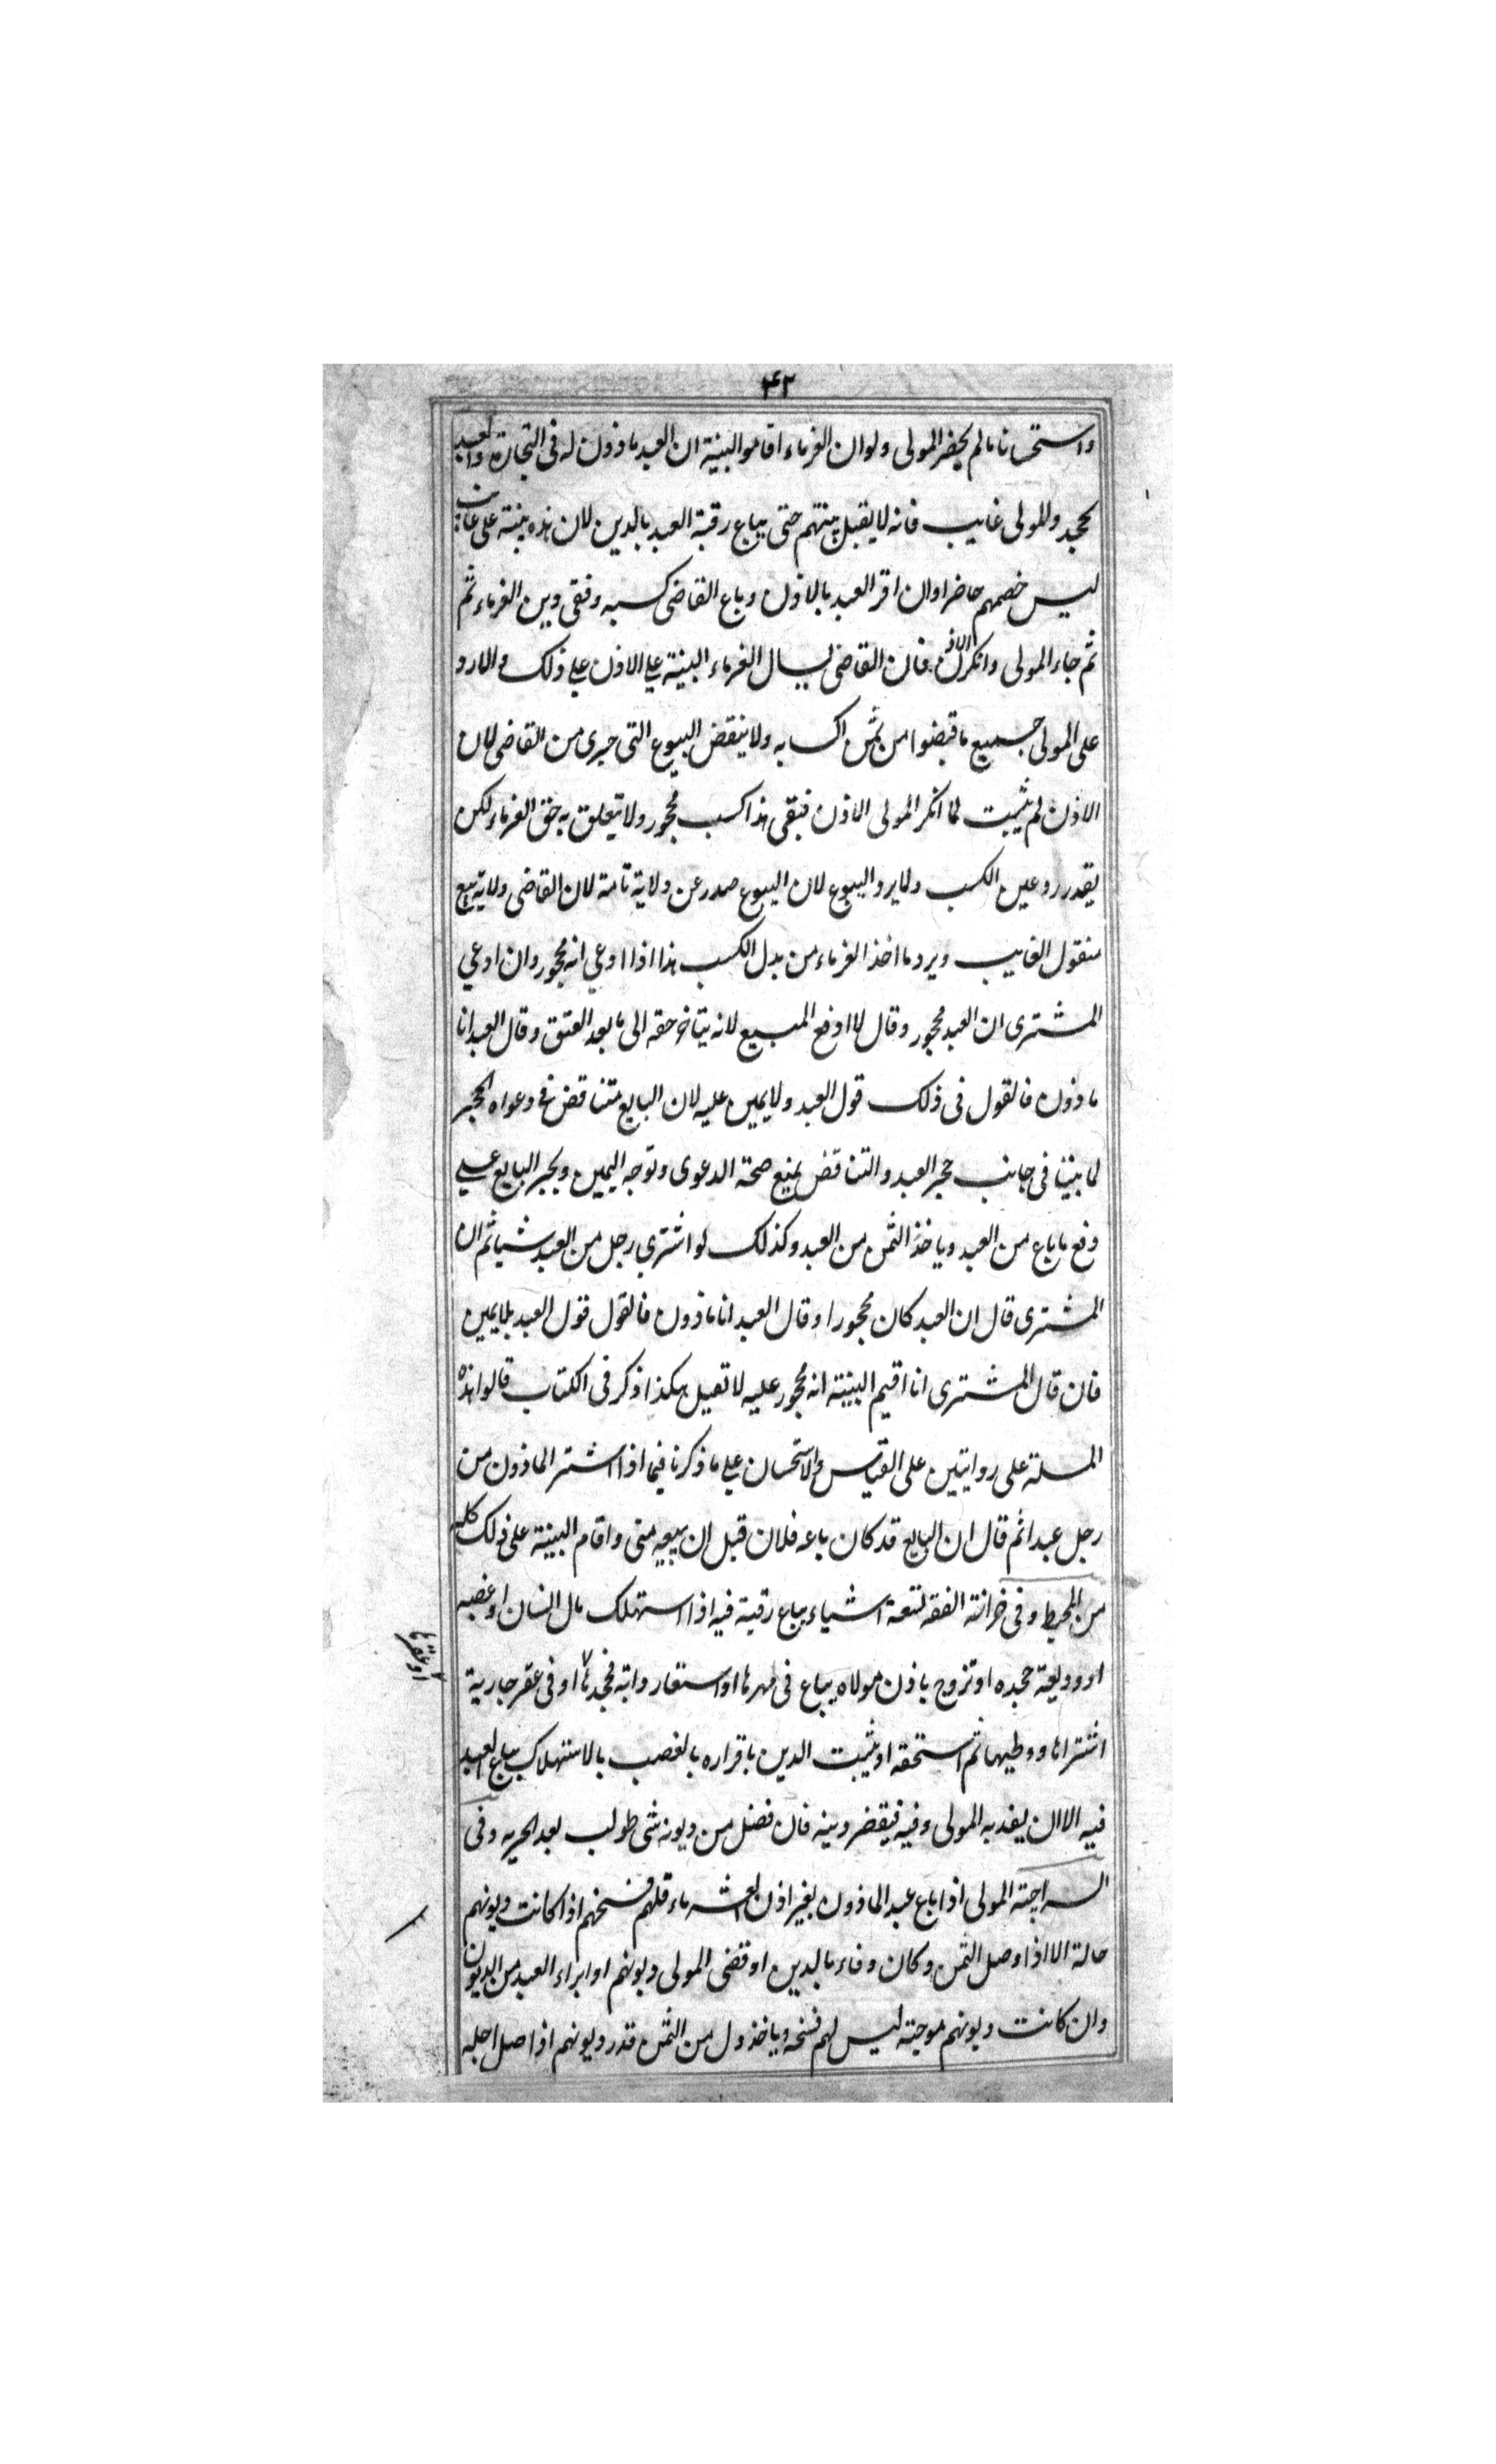 ۴۲
واستحسانا مالم يحضر المولى ولو ان الغرماء اقاموا البينة ان العبد ماذون له فى التجارة والعبد
يجحد والمولى غايب فانه لا يقبل بينتهم حتى يباع رقبة العبد بالدين لان هذه بينة على غايب
ليس خصمهم حاضرا وان اقر العبد بالاذن وباع القاضى كسبه وقضى دين الغرماء ثم
ثم جاء المولى وانكر الاذن فان القاضى يسال الغرماء البينة على الاذن على ذلك والا رد
على المولى جميع ما قبضوا من ثمن اكسابه ولا ينقض البيوع التى جرى من القاضى لان
الاذن لم يثبت لما انكر المولى الاذن فبقى هذا كسب محجور ولا يتعلق به حق الغرماء لكن
يقدر رد عين الكسب ولا يرد البيوع لان البيوع صدر عن ولاية تامة لان القاضى ولاية بيع
منقول الغايب ويرد ما اخذ الغرماء من بدل الكسب هذا اذا ادعى انه محجور وان ادعى
المشترى ان العبد محجور وقال لا ادفع المبيع لانه يتاخر حقه الى ما بعد العتق وقال العبد انا
ماذون فالقول فى ذلك قول العبد ولا يمين عليه لان البايع متناقض فى دعواه الحجر
لما بينا فى جانب حجر العبد والتناقض يمنع صحة الدعوى وتوجه اليمين ويجبر البايع على
دفع ما باع من العبد وياخذ الثمن من العبد وكذلك لو اشترى رجل من العبد شيا ثم ان
المشترى قال ان العبد كان محجورا وقال العبد انا ماذون فالقول قول العبد بلا يمين
فان قال المشترى انا اقيم البينة انه محجور عليه لا تقبل هكذا ذكر فى الكتاب قالوا هذه
المسلة على روايتين على القياس والاستحسان على ما ذكرنا فيما اذا اشتر الماذون من
رجل عبدا ثم قال ان البايع قد كان باعه فلان قبل ان يبيعه منى واقام البينة على ذلك كله
من المحيط وفى خزانة الفقه لتسعة اشياء يباع رقبة فيه اذا استهلك مال انسان او غصبه
او وديعة جحده او تزوج باذن مولاه يباع فى مهرها او استعار دابة فجحدها او فى عقر جارية
او عقرها
اشتراها ووطيها ثم استحقه او يثبت الدين باقراره بالغصب بالاستهلاك يباع العبد
فيه الا ان يفديه المولى وفيه فيقضر دينه فان فضل من ديونه شى طولب بعد الحريه وفى
السراجية المولى اذا باع عبد الماذون بغير اذن الغرماء فلهم فسخهم اذا كانت ديونهم
حالة الا اذا وصل الثمن وكان وفاء بالدين او قضى المولى ديونهم او ابراء العبد من الديون
وان كانت ديونهم موجبة ليس لهم فسخه وياخذون من الثمن قدر ديونهم اذا حل اجله